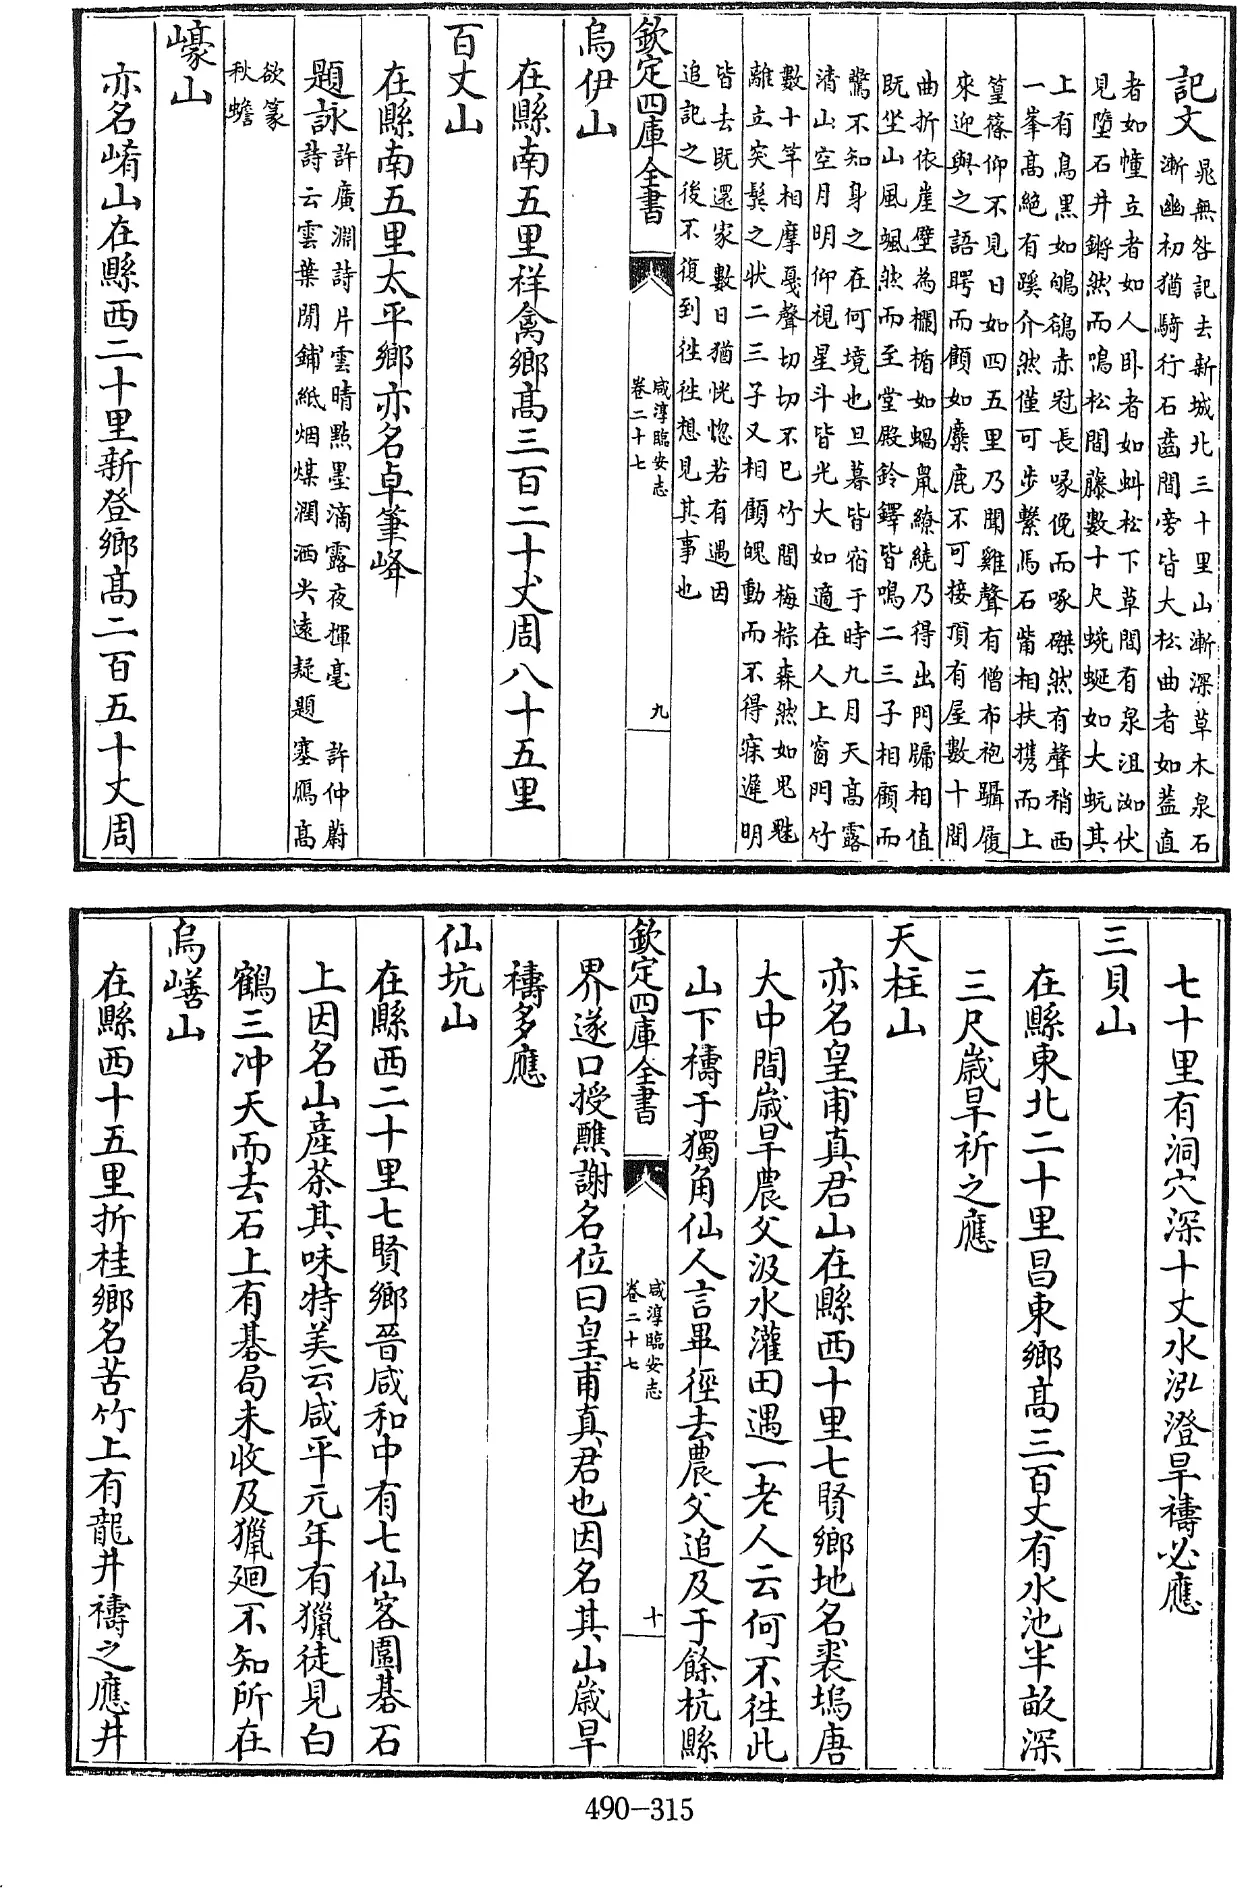 記文
晁無咎記去新城北三十里山漸深草木泉石
漸幽初猶騎行石齒間旁皆大松曲者如蓋直
者如幢立者如人卧者如蚪松下草間有泉沮洳伏
見墮石井鏘然而鳴松間藤數十尺蜿蜒如大蚖其
上有鳥黑如鴝鵒赤冠長喙俛而啄磔然有聲稍西
一峯高絶有蹊介然僅可步繫馬石觜相扶携而上
篁篠仰不見日如四五里乃聞雞聲有僧布袍躡履
來迎與之語而顧如麋鹿不可接頂有屋數十間
曲折依崖壁為欄楯如蝸鼠繚繞乃得出門牖相值
既坐山風颯然而至堂殿鈴鐸皆鳴二三子相顧而
驚不知身之在何境也旦暮皆宿于時九月天高露
清山空月明仰視星斗皆光大如適在人上窗門竹
數十竿相摩戛聲切切不已竹間梅棕森然如鬼魅
離立突鬂之狀二三子又相顧魄動而不得寐遲明
皆去既還家數日猶恍惚若有遇因
追記之後不復到往往想見其事也
欽定四庫全書
咸淳臨安志
卷二十七
九
烏伊山
在縣南五里祥禽鄉髙三百二十丈周八十五里
百丈山
在縣南五里太平鄉亦名卓筆峰
題詠
許廣淵詩片雲晴㸃墨滴露夜揮毫　許仲蔚
詩云雲葉閒鋪紙烟煤潤洒尖遠疑題　塞鴈髙
欲篆
秋蟾
㠙山
亦名崤山在縣西二十里新登鄉髙二百五十丈周
七十里有洞穴深十丈水泓澄旱禱必應
三貝山
在縣東北二十里昌東鄉髙三百丈有水池半畝深
三尺歲旱祈之應
天柱山
亦名皇甫真君山在縣西十里七賢鄉地名裘塢唐
大中間歲旱農父汲水灌田遇一老人云何不往此
山下禱于獨角仙人言畢徑去農父追及于餘杭縣
欽定四庫全書
咸淳臨安志
卷二十七
十
界遂口授醮謝名位曰皇甫真君也因名其山歲旱
禱多應
仙坑山
在縣西二十里七賢鄉晉咸和中有七仙客圍碁石
上因名山産茶其味特美云咸平元年有獵徒見白
鶴三冲天而去石上有碁局未收及獵廻不知所在
烏嶓山
在縣西十五里折桂鄉名苦竹上有龍井禱之應井
490-315